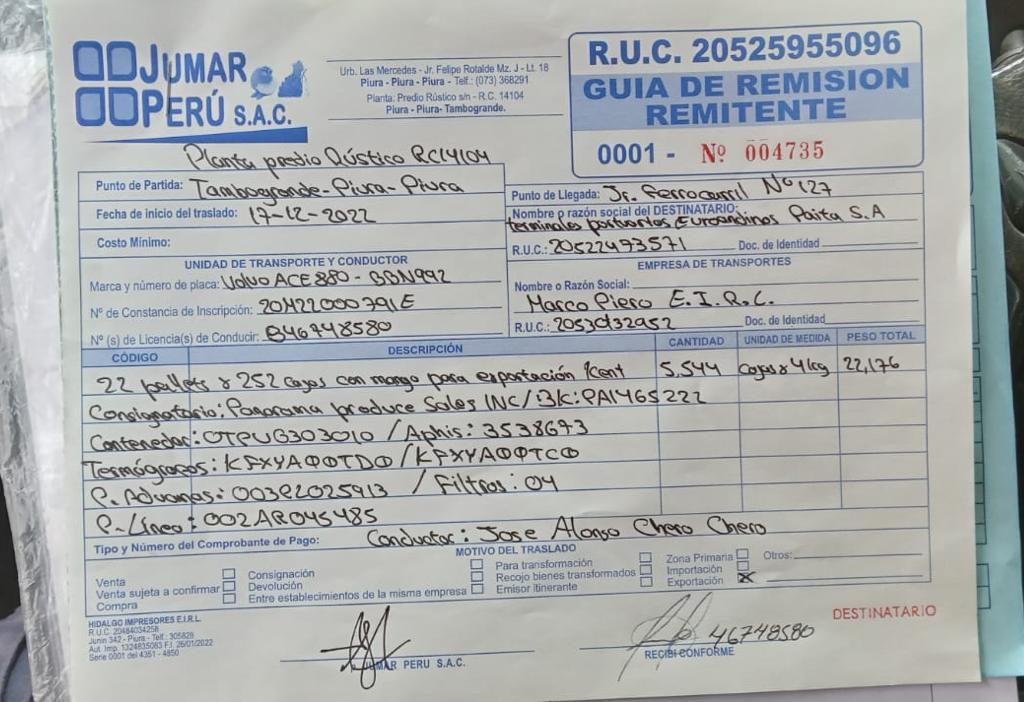 JUMAR
PERÚ S.A.C.
Urb. Las Mercedes - Jr. Felipe Rotalde Mz. J - Lt. 18
Piura - Piura - Piura - Telf.: (073) 368291
Planta: Predio Rústico s/n - R.C. 14104
Piura - Piura- Tambogrande.
R.U.C. 20525955096
GUIA DE REMISION
REMITENTE
0001 - Nº 004735
Planta predio Rústico RC14104
Punto de Partida: Tambogrande-Piura-Piura
Fecha de inicio del traslado: 17-12-2022
Costo Mínimo:
Punto de Llegada: Jr. Ferrocarril Nº 127
Nombre o razón social del DESTINATARIO:
terminales portuarios Euroandinos Paita S.A
R.U.C.: 20522473571 Doc. de Identidad
UNIDAD DE TRANSPORTE Y CONDUCTOR
Marca y número de placa: Volvo ACE880 - BBN992
Nº de Constancia de Inscripción: 20M22000791E
Nº (s) de Licencia(s) de Conducir: B46748580
EMPRESA DE TRANSPORTES
Nombre o Razón Social:
Marco Piero E.I.R.L.
R.U.C.: Doc. de Identidad
CÓDIGO DESCRIPCIÓN CANTIDAD UNIDAD DE MEDIDA PESO TOTAL
22 pallets x 252 cajas con mango para exportación Kent 5,544 cajas x 4kg 22,176
Consignatario: Panorama produce Sales INC/BK: PAI465222
Contenedor: OTPU6303010 / Aphis: 3538673
Termógrafos: KFXYA00TD0 / KFXYA00TC0
P. Aduanas: / Filtros: 04
P. Línea: 002AR045485
Tipo y Número del Comprobante de Pago: Conductor: Jose Alonso Chero Chero
MOTIVO DEL TRASLADO
Venta
Venta sujeta a confirmar
Compra
Consignación
Devolución
Entre establecimientos de la misma empresa
Para transformación
Recojo bienes transformados
Emisor itinerante
Zona Primaria
Importación
Exportación X
Otros:
HIDALGO IMPRESORES E.I.R.L.
R.U.C. 20484034258
Junin 342 - Piura - Telf.: 305829
Aut. Imp. 1324835083 F.I. 26/01/2022
Serie 0001 del 4351 - 4850
JUMAR PERU S.A.C.
46748580
RECIBI CONFORME
DESTINATARIO